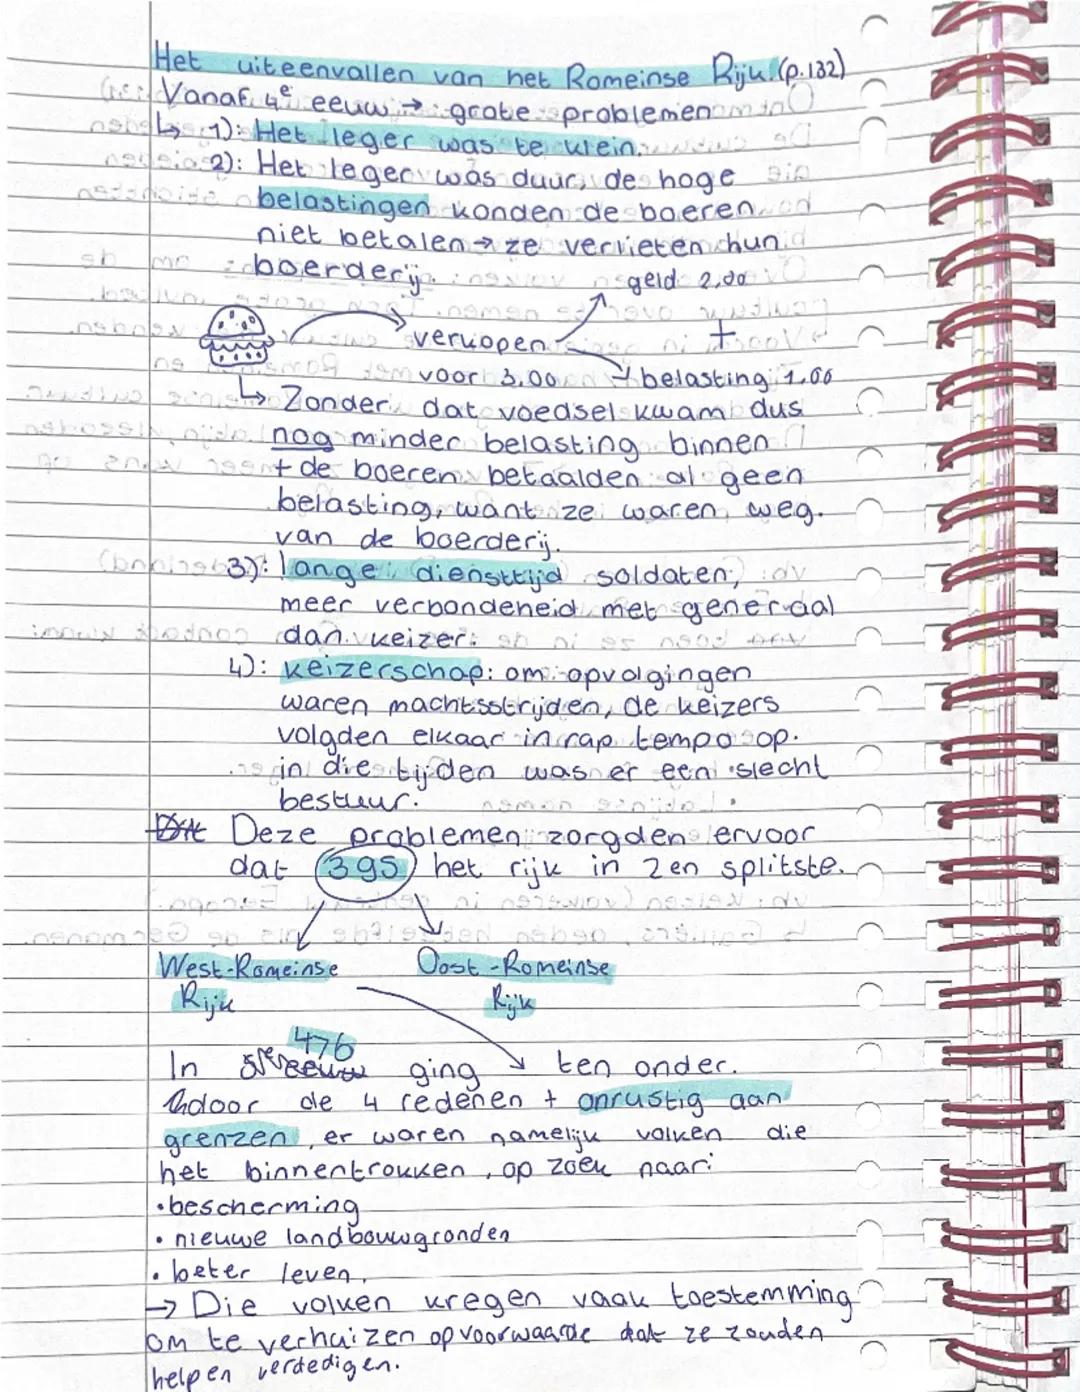 Het uiteenvallen van het Romeinse Rijk. (p.132)
Vanaf 4e eeuw → grote problemen
↳ 1): Het leger was te klein.
2): Het leger was duur, de hoge
belastingen konden de boeren
niet betalen → ze verlieten hun
boerderij.
geld 2,00
verkopen +
voor 3,00 belasting 1,00
↳ Zonder dat voedsel kwam dus
nog minder belasting binnen
+ de boeren betaalden al geen
belasting, want ze waren weg
van de boerderij.
3): lange diensttijd soldaten,
meer verbondeneid met generaal
dan keizer.
4): keizerschap: om opvolgingen
waren machtsstrijden, de keizers
volgden elkaar in rap tempo op.
in die tijden was er een slecht
bestuur.
Deze problemen zorgden ervoor
dat 395 het rijk in 2en splitste.
West-Romeinse Oost-Romeinse
Rijk Rijk
476
In ging ↘ ten onder.
door de 4 redenen + onrustig aan
grenzen, er waren namelijk volken die
het binnentrokken, op zoek naar:
• bescherming
• nieuwe landbouwgronden
• beter leven.
→ Die volken kregen vaak toestemming
om te verhuizen op voorwaarde dat ze zouden
helpen verdedigen.